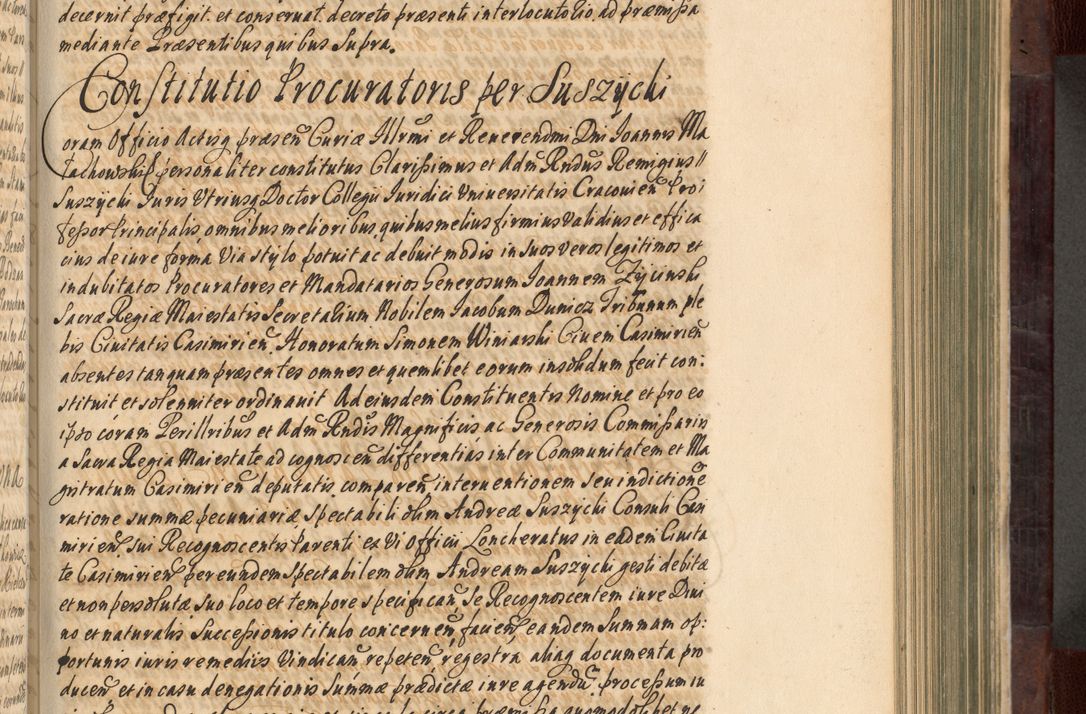 decernit præfigit et conservat, decreto præsenti interlocutorio ad præmissa
mediante Præsentibus quibus supra.
Constitutio Procuratoris per Suszycki
Coram Officio Actisq præseñ Curiæ Illrmi et Reverendmi Dni Joannis Ma
łachowski personaliter constitutus Clarissimus et Adm Rndus Remigius
Suszycki Juris Utriusq Doctor Collegii Iuridici Universitatis Cracovieñ Pro
fessor Principalis, omnibus melioribus, quibus melius firmius validius et effica
cius de iure forma via stylo potuit ac debuit modis in suos veros legitimos et
indubitatos Procuratores et Mandatarios Generosum Joannem Zyicinski
Sacræ Regiæ Maiestatis Secretarium Nobilem Jacobum Dunicz Tribunum ple
bis Civitatis Casimirieñ, Honoratum Simonem Winiarski Civem Casimirieñ
absentes tanquam præsentes omnes et quemlibet eorum insolidum fecit con:
stituit et solenniter ordinavit Ad eiusdem Constituentis Nomine et pro eo
ipso coram Perillribus et Adm Rndis Magnificis ac Generosis Commissariis
a Sacra Regia Maiestate ad cognosceñ differentias inter Communitatem et Ma
gistratum Casimirieñ deputatis, compareñ, interventionem seu indictione
ratione summæ pecuniariæ Spectabili olim Andreæ Suszycki Consuli Casi
mirieñ, sui Recognoscentis Parenti ex Vi Officii Loncheratus in eadem Civita
te Casimirieñ per eundem Spectabilem olim Andream Suszycki gesti debitæ
et non persolutæ suo loco et tempore specificañ, se Recognoscentem iure Divi
no et naturalis Successionis titulo concerneñ, facieñ, eandem Summam op:
portunis iuris remediis Vindicañ repeteñ, regestra aliaq documenta pro
duceñ et in casu denegationis Summæ prædictæ iure agendi, processum iu